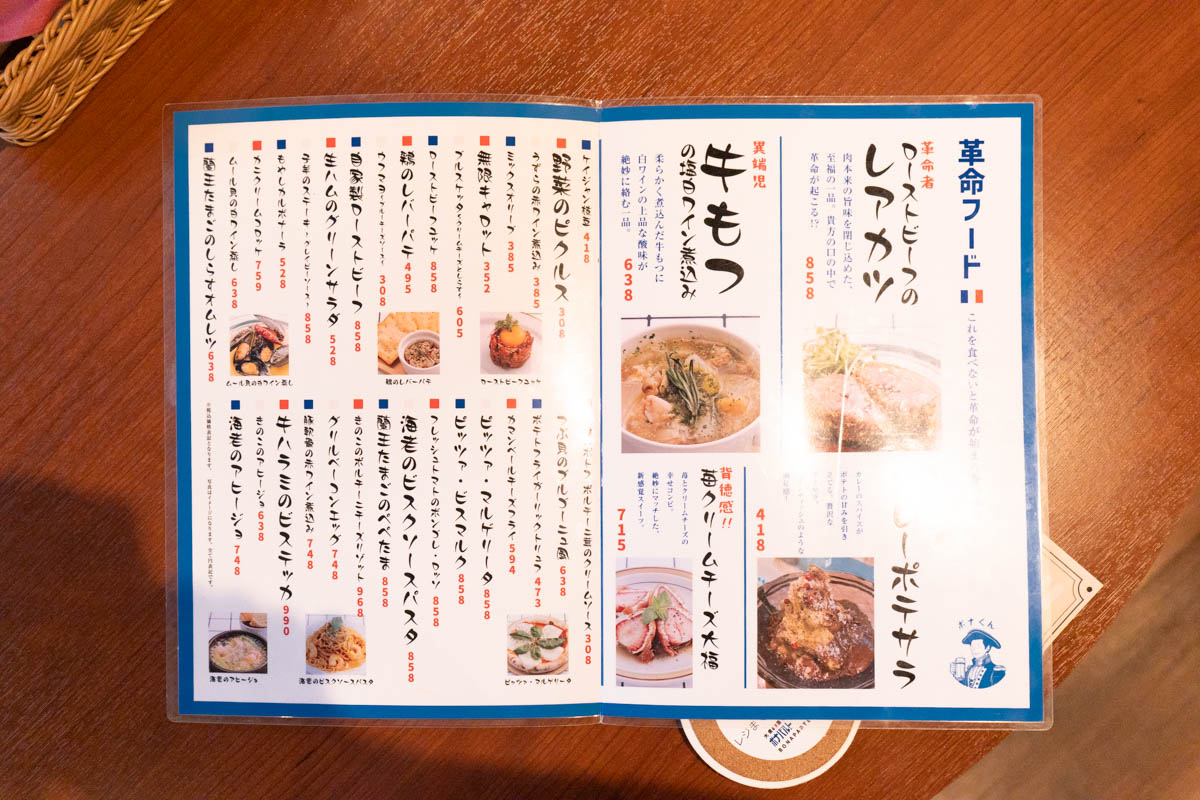 革命フード
これを食べないと革命が
革命者
ローストビーフの
レアカツ
肉本来の旨味を閉じ込めた、
至福の一品。貴方の口の中で
革命が起こる!?
858
異端児
牛もつ
の塩白ワイン煮込み
柔らかく煮込んだ牛もつに
白ワインの上品な酸味が
絶妙に絡む一品。
638
レーポテサラ
カレーのスパイスが
ポテトの甘みを引き
立てる、贅沢な
418
背徳感!!
苺クリームチーズ大福
苺とクリームチーズの
幸せコンビ。
絶妙にマッチした、
新感覚スイーツ。
715
ボナくん
ケイジャン枝豆 418
野菜のピクルス 308
うずらの赤ワイン煮込み 385
ミックスオリーブ 385
無限キャロット 352
605
ローストビーフユッケ 858
鶏のレバーパテ 495
308
自家製ローストビーフ 858
生ハムのグリーンサラダ 528
858
もやしカルボナーラ 528
カニクリームコロッケ 759
ムール貝の白ワイン蒸し 638
蘭王たまごのしらすオムレツ 638
ローストビーフユッケ
鶏のレバーパテ
ムール貝の白ワイン蒸し
ポルチーニ茸のクリームソース 308
つぶ貝のブルゴーニュ風 638
ポテトフライガーリックトリュフ 473
カマンベールチーズフライ 594
ピッツァ・マルゲリータ 858
ピッツァ・ビスマルク 858
フレッシュトマトのボンゴレ・ロッソ 858
海老のビスクソースパスタ 858
蘭王たまごのペペたま 858
きのこのポルチーニチーズリゾット 968
グリルベーコンエッグ 748
豚軟骨の赤ワイン煮込み 748
牛ハラミのビステッカ 990
きのこのアヒージョ 638
海老のアヒージョ 748
ピッツァ・マルゲリータ
海老のビスクソースパスタ
海老のアヒージョ
※税込価格表記となります。 写真はイメージになります。全て円表記です。
レジま
BONAPARTE